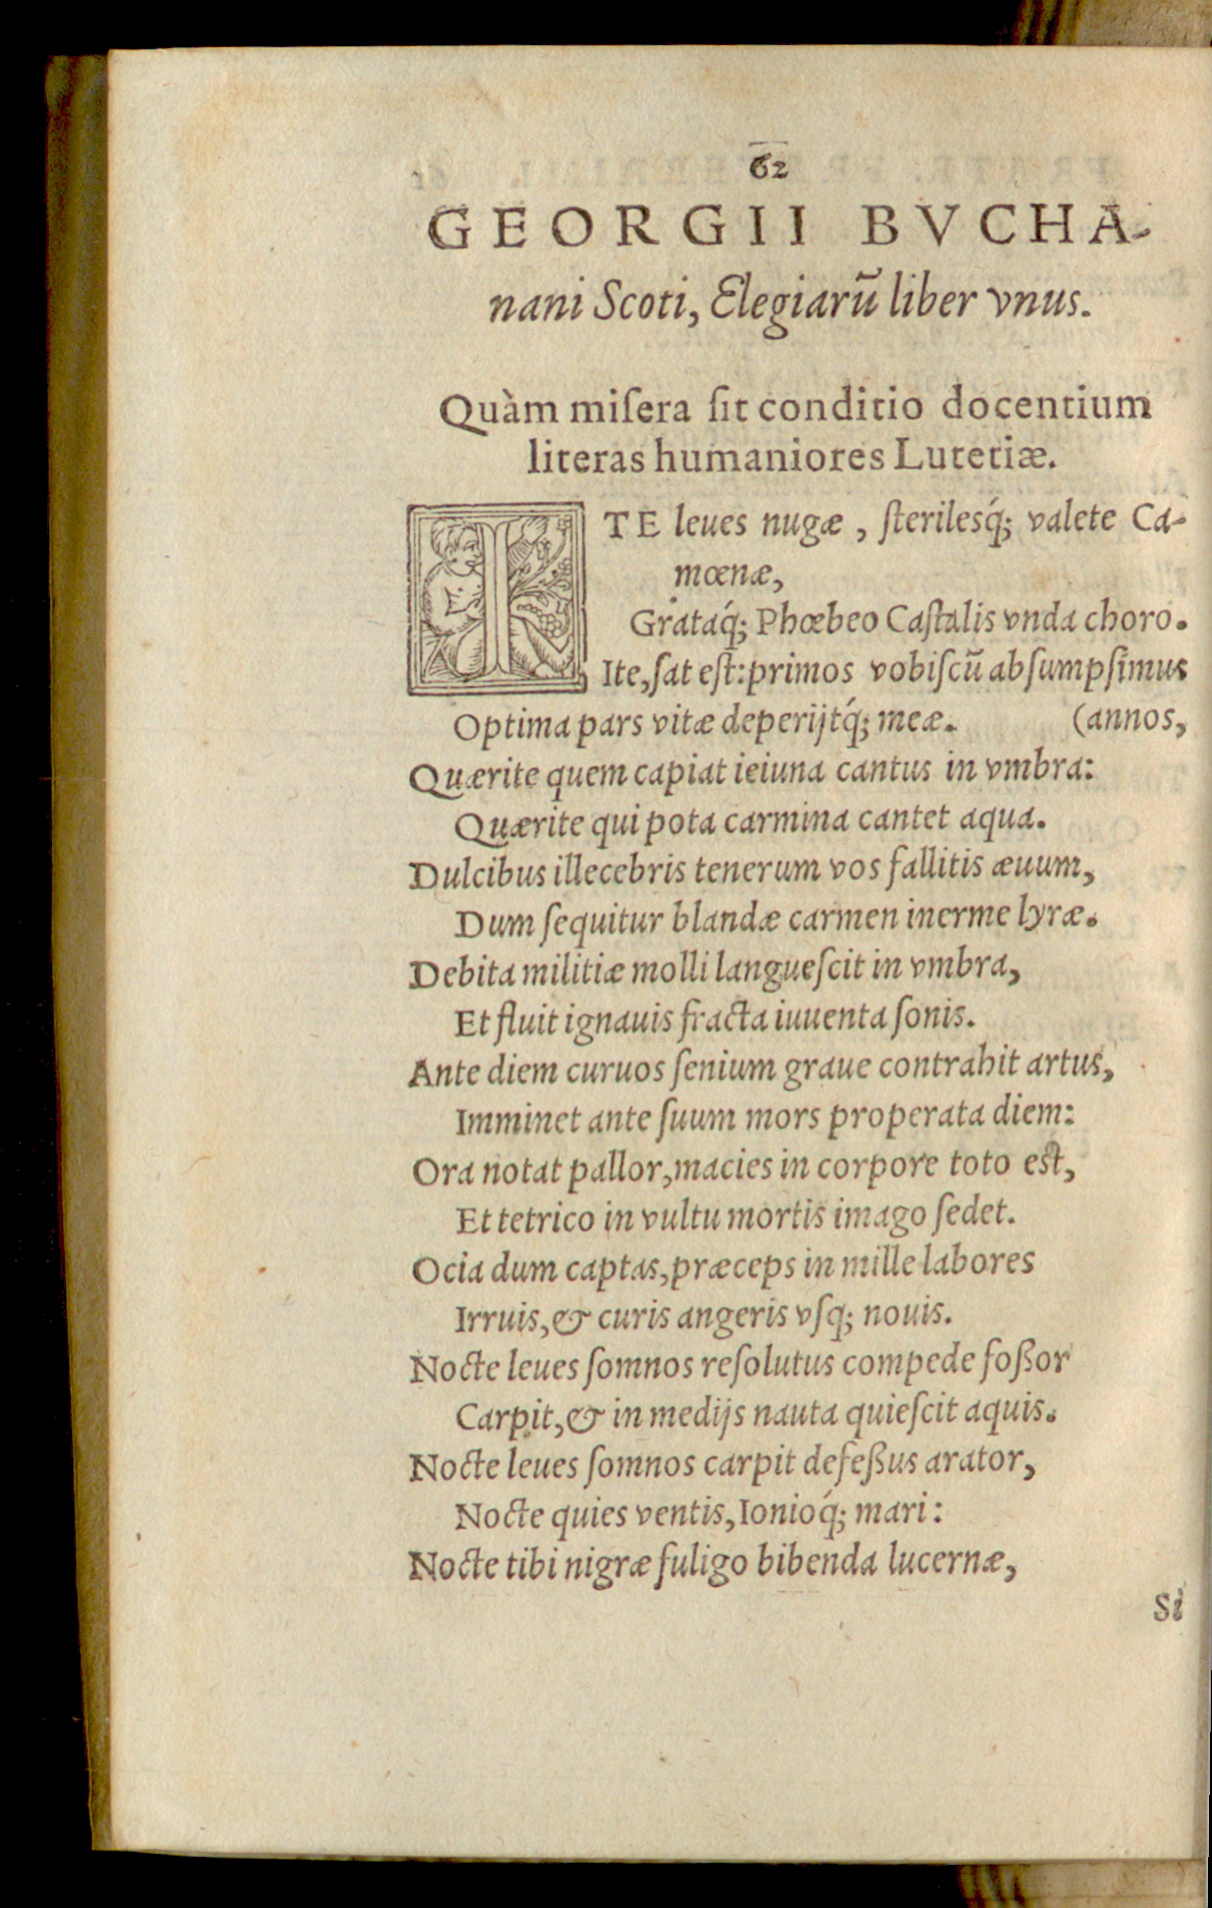 62
GEORGII BVCHA-
nani Scoti, Elegiarū liber vnus.
Quàm miſera ſit conditio docentium
literas humaniores Lutetiæ.
ITE leues nugæ, ſterilesq́; valete Ca-
mœnæ,
Grataq́; Phœbeo Caſtalis vnda choro.
Ite, ſat eſt: primos vobiſcū abſumpſimus
Optima pars vitæ deperijtq́; meæ. (annos,
Quærite quem capiat ieiuna cantus in vmbra:
Quærite qui pota carmina cantet aqua.
Dulcibus illecebris tenerum vos fallitis æuum,
Dum ſequitur blandæ carmen inerme lyræ.
Debita militiæ molli langueſcit in vmbra,
Et fluit ignauis fracta iuuenta ſonis.
Ante diem curuos ſenium graue contrahit artus,
Imminet ante ſuum mors properata diem:
Ora notat pallor, macies in corpore toto eſt,
Et tetrico in vultu mortis imago ſedet.
Ocia dum captas, præceps in mille labores
Irruis, & curis angeris vſq; nouis.
Nocte leues ſomnos reſolutus compede foßor
Carpit, & in medijs nauta quieſcit aquis.
Nocte leues ſomnos carpit defeßus arator,
Nocte quies ventis, Ionioq́; mari:
Nocte tibi nigræ fuligo bibenda lucernæ,
Si